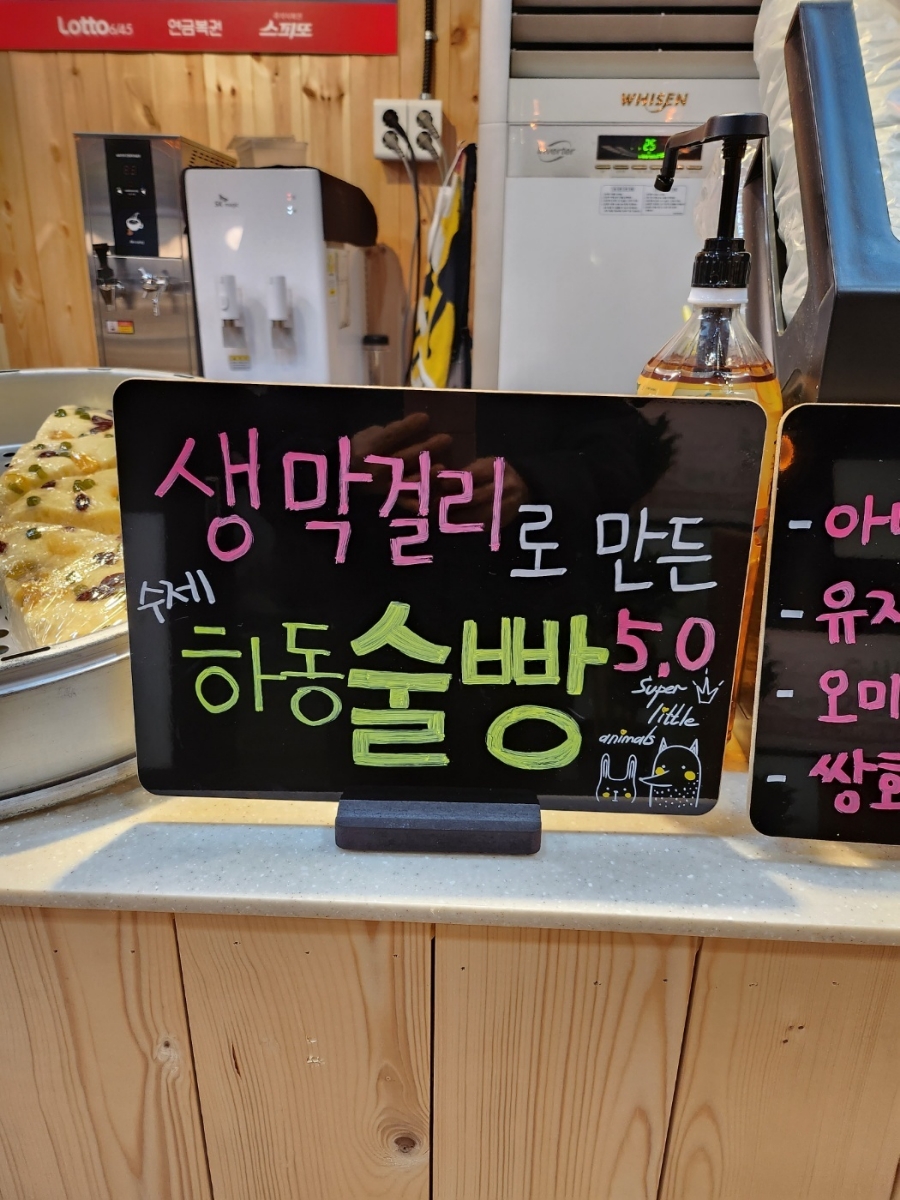 Lotto6/45 연금복권 스피또
WHISEN
Inverter
25
SK magic
생막걸리로 만든
수제
하동술빵 5.0
Super
little
animals
- 아
- 유자
- 오미
- 쌍화